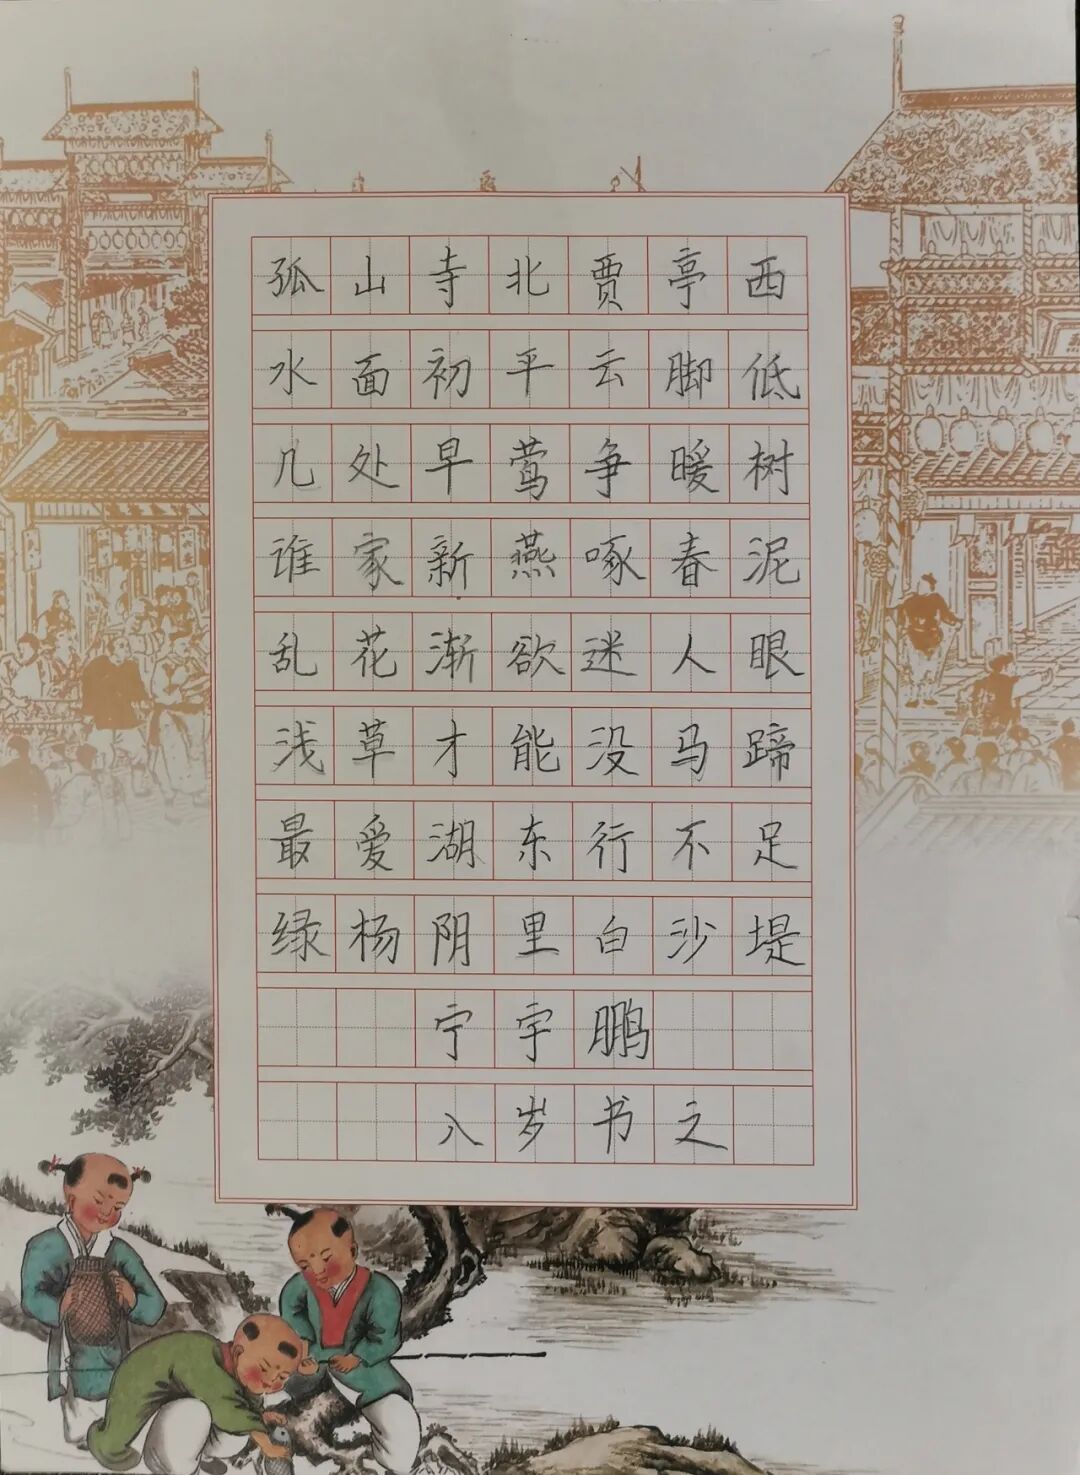 孤山寺北贾亭西
水面初平云脚低
几处早莺争暖树
谁家新燕啄春泥
乱花渐欲迷人眼
浅草才能没马蹄
最爱湖东行不足
绿杨阴里白沙堤
宁宇鹏
八岁书之